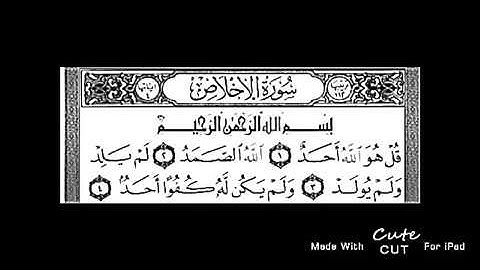 سُورَةُ الإِخْلَاصِ
بِسْمِ اللَّهِ الرَّحْمَٰنِ الرَّحِيمِ
قُلْ هُوَ اللَّهُ أَحَدٌ ١ اللَّهُ الصَّمَدُ ٢ لَمْ يَلِدْ
وَلَمْ يُولَدْ ٣ وَلَمْ يَكُن لَّهُ كُفُوًا أَحَدٌ ٤
Made With Cute CUT For iPad